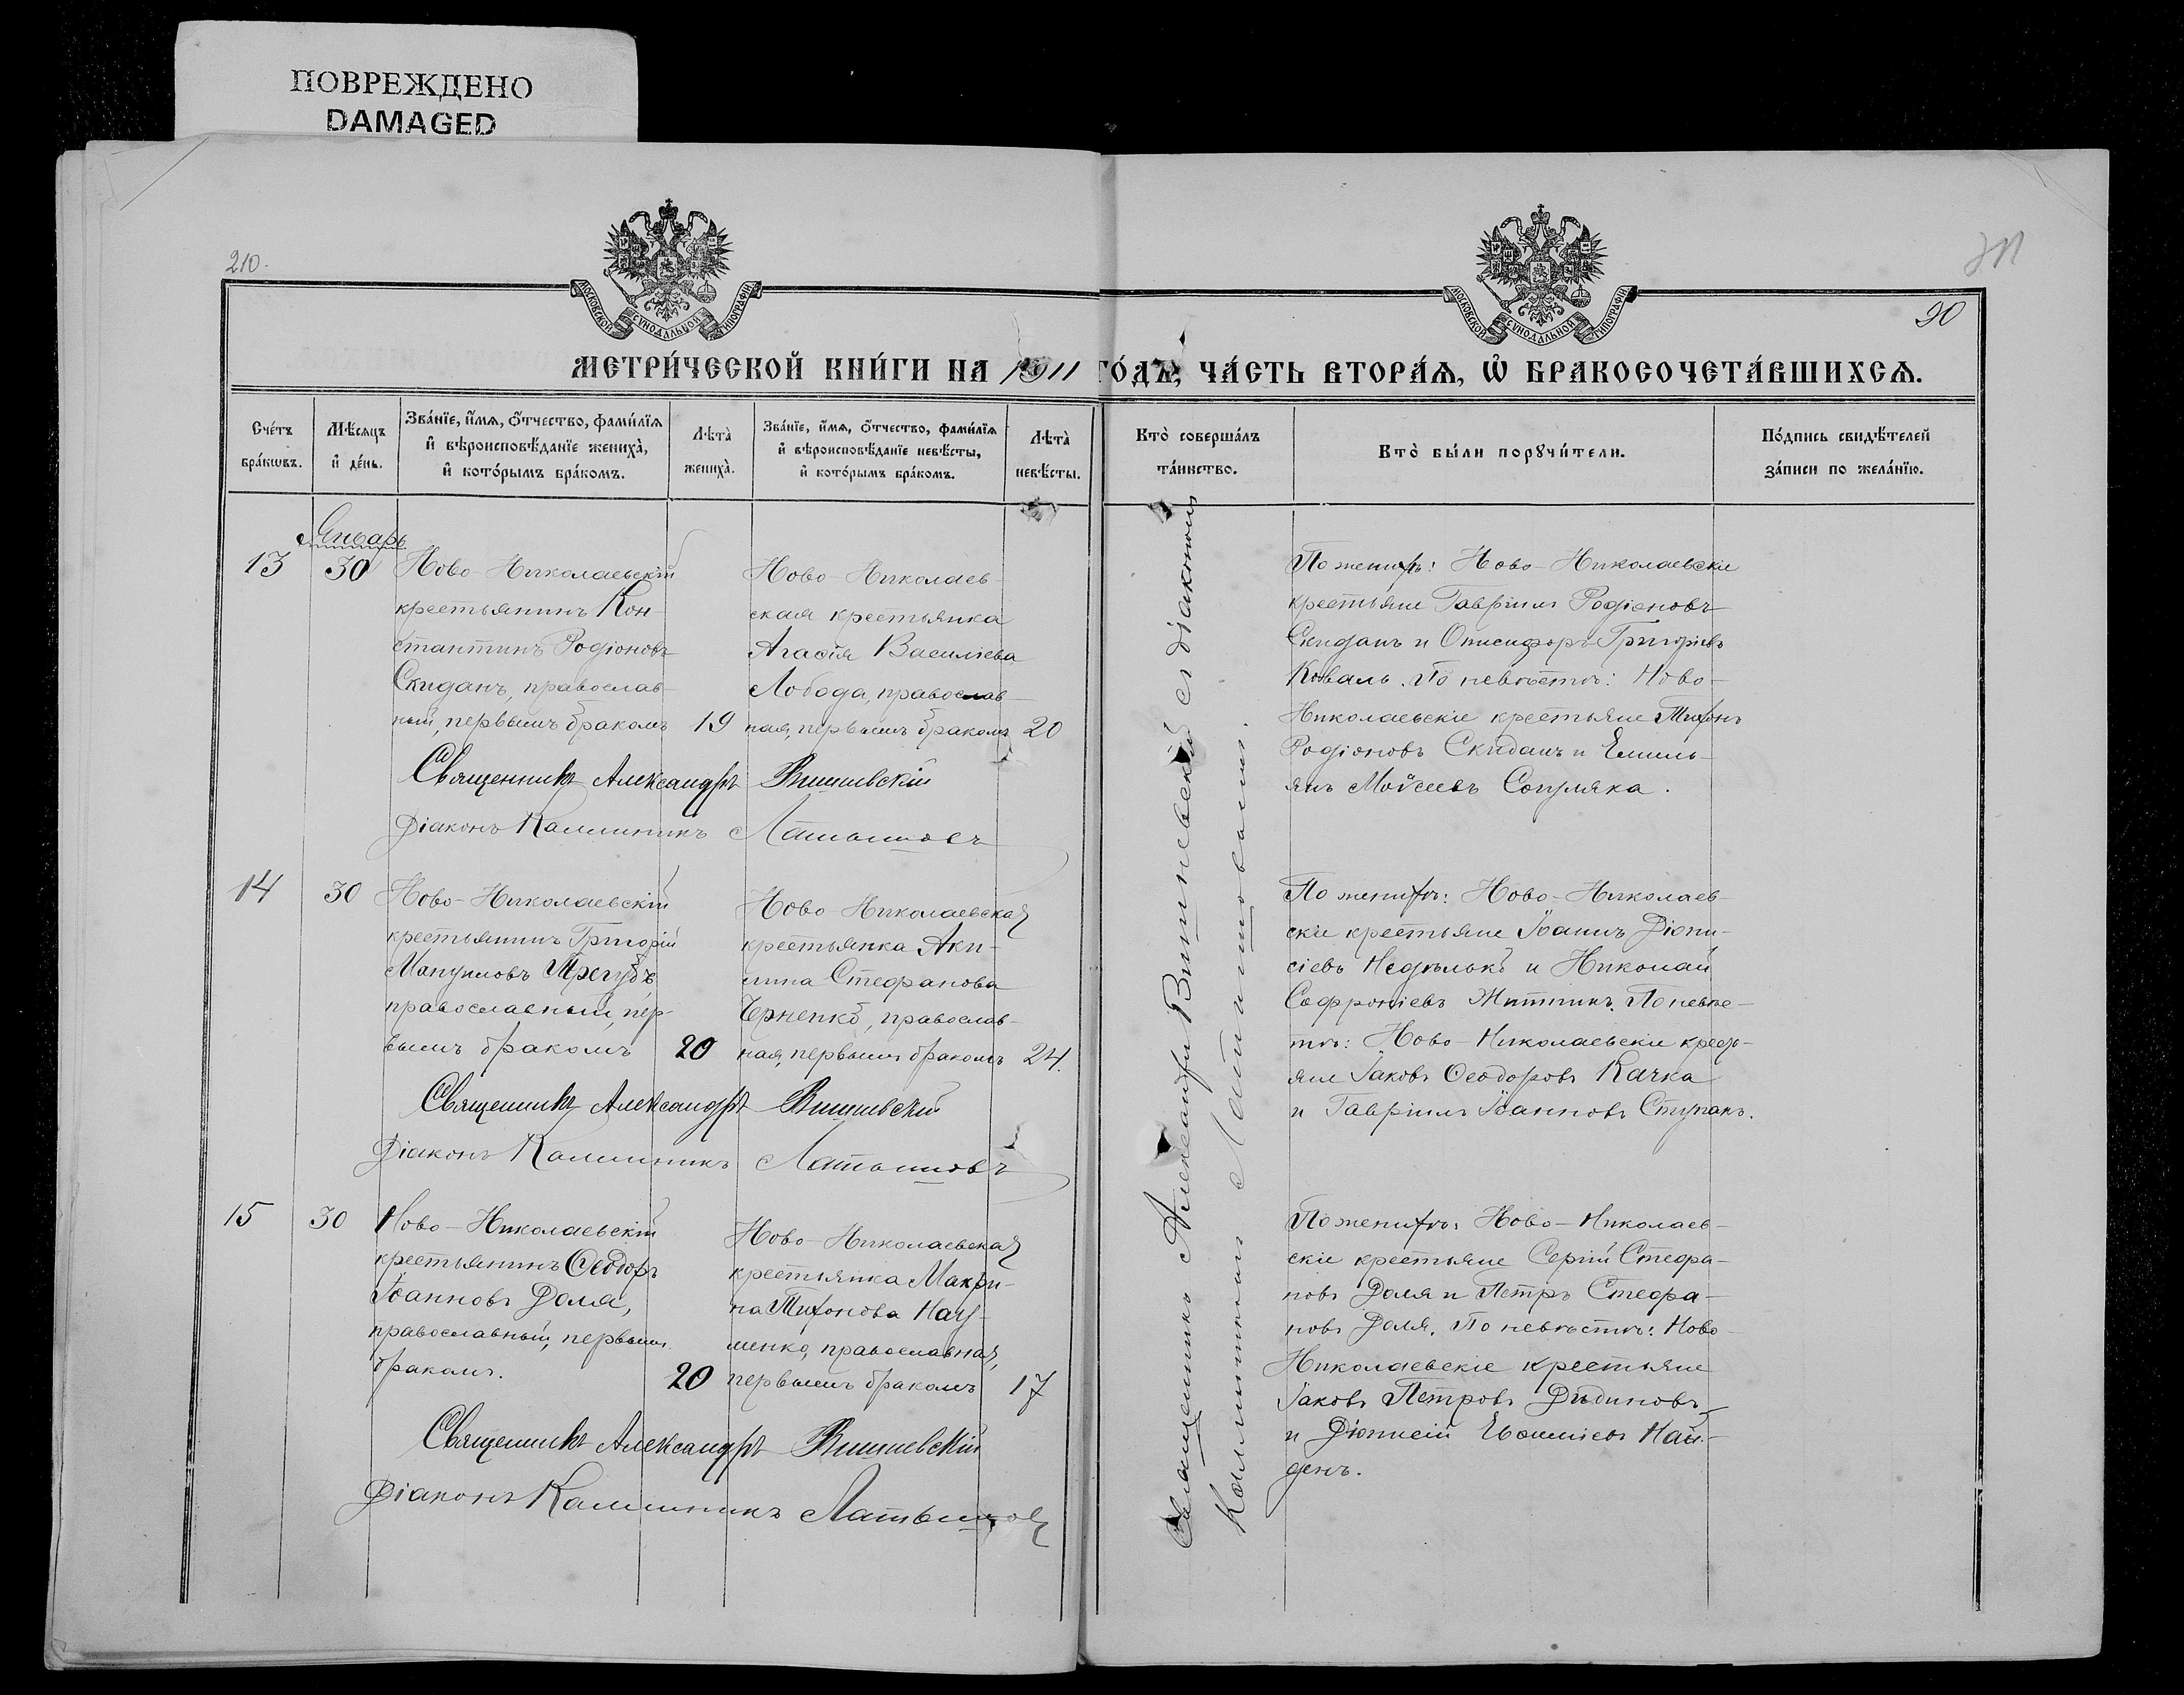 ПОВРЕЖДЕНО
DAMAGED
210.
90
МОСКОВСКОЙ СѴНОДАЛЬНОЙ ТИПОГРАФІИ
МОСКОВСКОЙ СѴНОДАЛЬНОЙ ТИПОГРАФІИ
МЕТРИ́ЧЕСКОЙ КНИ́ГИ НА 1911 ГО́ДЪ, ЧА́СТЬ ВТОРА́Ѧ, Ѽ БРАКОСОЧЕТА́ВШИХСѦ.
Сче́тъ
бра́кѡвъ.
Мѣ́сѧцъ
и҆ де́нь.
Зва́нїе, и҆́мѧ, ѻ҆́тчество, фами́лїѧ
и҆ вѣроисповѣ́данїе жениха̀,
и҆ кото́рымъ бра́комъ.
Лѣта̀
жениха̀.
Зва́нїе, и҆́мѧ, ѻ҆́тчество, фами́лїѧ
и҆ вѣроисповѣ́данїе невѣ́сты,
и҆ кото́рымъ бра́комъ.
Лѣта̀
невѣ́сты.
Кто̀ соверша́лъ
та́инство.
Кто̀ бы́ли порꙋчи́тели.
По́дпись свидѣ́телей
за́писи по жела́нїю.
Январь
13
30
Ново-Николаевскій
крестьянинъ Кон-
стантинъ Родіоновъ
Скиданъ, православ-
ный, первымъ бракомъ
19
Ново-Николаев-
ская крестьянка
Агаѳія Василіева
Лобода, православ-
ная, первымъ бракомъ
20
Священникъ Александръ Вишневскій
Діаконъ Каллиникъ Латышовъ
По женихѣ: Ново-Николаевскіе
крестьяне Гавріилъ Родіоновъ
Скиданъ и Онисифоръ Григоріевъ
Коваль. По невѣстѣ: Ново-
Николаевскіе крестьяне Тихонъ
Родіоновъ Скиданъ и Емиль-
янъ Моѵсеевъ Сопляка.
14
30
Ново-Николаевскій
крестьянинъ Григорій
Мануиловъ Трегубъ,
православный, пер-
вымъ бракомъ
20
Ново-Николаевская
крестьянка Аки-
лина Стефанова
Черненко, православ-
ная, первымъ бракомъ
24.
Священникъ Александръ Вишневскій
Діаконъ Каллиникъ Латышовъ
По женихѣ: Ново-Николаев-
скіе крестьяне Іоаннъ Діони-
сіевъ Недѣлько и Николай
Софроніевъ Житникъ. По невѣс-
тѣ: Ново-Николаевскіе крест-
яне Іаковъ Ѳеодоровъ Качка
и Гавріилъ Іоанновъ Ступакъ.
15
30
Ново-Николаевскій
крестьянинъ Ѳеодоръ
Іоанновъ Доля,
православный, первымъ
бракомъ.
20
Ново-Николаевская
крестьянка Макри-
на Тихонова Нау-
менко, православная,
первымъ бракомъ
17
Священникъ Александръ Вишневскій
Діаконъ Каллиникъ Латышовъ
По женихѣ: Ново-Николаев-
скіе крестьяне Сергій Стефа-
новъ Доля и Петръ Стефа-
новъ Доля. По невѣстѣ: Ново-
Николаевскіе крестьяне
Іаковъ Петровъ
и Діонисій Евѳиміевъ Най-
денъ.
Священникъ Александръ Вишневскій съ діакономъ
Каллиникомъ Латышовымъ.